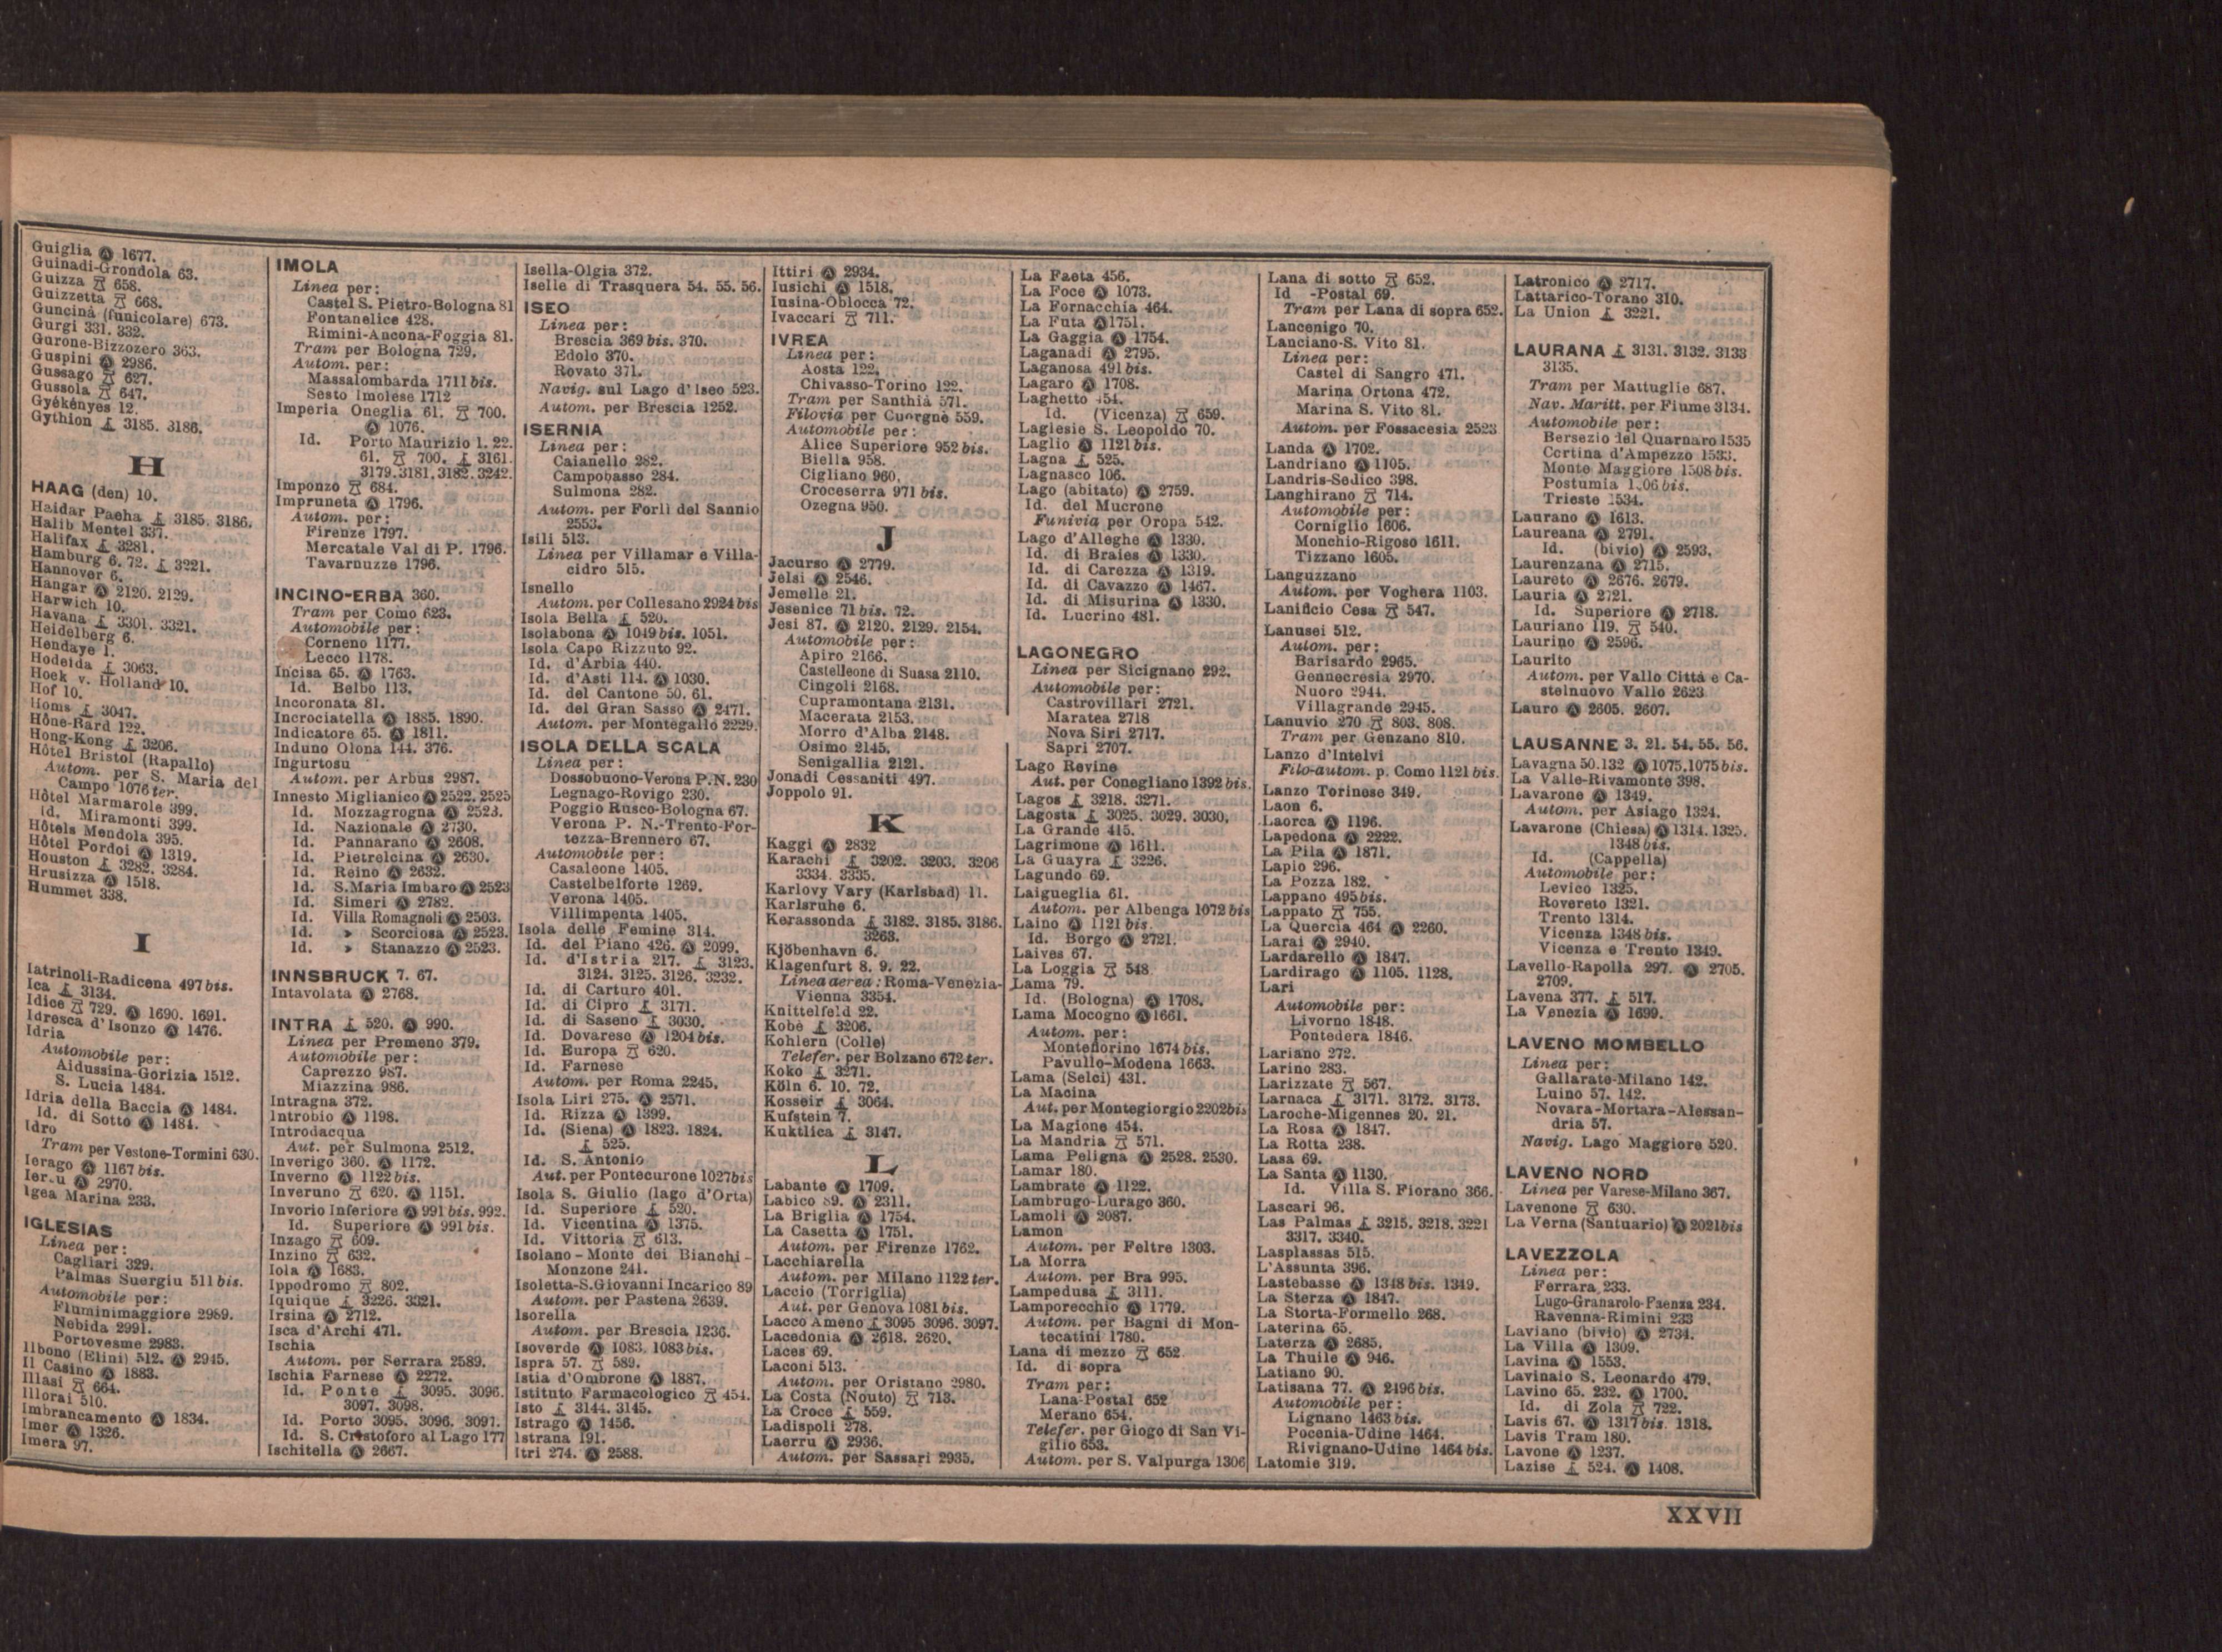 Guiglia Ⓐ 1677.
Guinadi-Grondola 63.
Guizza 658.
Guizzetta 668.
Guncinà (funicolare) 673.
Gurgi 331. 332.
Gurone-Bizzozero 363.
Guspini Ⓐ 2986.
Gussago 627.
Gussola 647.
Gyékényes 12.
Gythion 3185. 3186.
H
HAAG (den) 10.
Haidar Pacha 3185. 3186.
Halib Mentel 337.
Halifax 3281.
Hamburg 6. 72. 3221.
Hannover 6.
Hangar Ⓐ 2120. 2129.
Harwich 10.
Havana 3301. 3321.
Heidelberg 6.
Hendaye 1.
Hodeida 3063.
Hoek v. Holland 10.
Hof 10.
Homs 3047.
Hône-Bard 122.
Hong-Kong 3206.
Hôtel Bristol (Rapallo)
Autom. per S. Maria del
Campo 1076 ter.
Hôtel Marmarole 399.
Id. Miramonti 399.
Hôtels Mendola 395.
Hôtel Pordoi Ⓐ 1319.
Houston 3282. 3284.
Hrusizza Ⓐ 1518.
Hummet 338.
I
Iatrinoli-Radicena 497 bis.
Ica 3134.
Idice 729. Ⓐ 1690. 1691.
Idresca d'Isonzo Ⓐ 1476.
Idria
Automobile per:
Aidussina-Gorizia 1512.
S. Lucia 1484.
Idria della Baccia Ⓐ 1484.
Id. di Sotto Ⓐ 1484.
Idro
Tram per Vestone-Tormini 630.
Ierago Ⓐ 1167 bis.
Ierzu Ⓐ 2970.
Igea Marina 233.
IGLESIAS
Linea per:
Cagliari 329.
Palmas Suergiu 511 bis.
Automobile per:
Fluminimaggiore 2989.
Nebida 2991.
Portovesme 2983.
Ilbono (Elini) 512. Ⓐ 2945.
Il Casino Ⓐ 1883.
Illasi 664.
Illorai 510.
Imbrancamento Ⓐ 1834.
Imer Ⓐ 1326.
Imera 97.
IMOLA
Linea per:
Castel S. Pietro-Bologna 81
Fontanelice 428.
Rimini-Ancona-Foggia 81.
Tram per Bologna 729.
Autom. per:
Massalombarda 1711 bis.
Sesto Imolese 1712
Imperia Oneglia 61. 700.
Ⓐ 1076.
Id. Porto Maurizio 1. 22.
61. 700. 3161.
3179. 3181. 3182. 3242.
Imponzo 684.
Impruneta Ⓐ 1796.
Autom. per:
Firenze 1797.
Mercatale Val di P. 1796.
Tavarnuzze 1796.
INCINO-ERBA 360.
Tram per Como 623.
Automobile per:
Corneno 1177.
Lecco 1178.
Incisa 65. Ⓐ 1763.
Id. Belbo 113.
Incoronata 81.
Incrociatella Ⓐ 1885. 1890.
Indicatore 65. Ⓐ 1811.
Induno Olona 144. 376.
Ingurtosu
Autom. per Arbus 2987.
Innesto Miglianico Ⓐ 2522. 2525
Id. Mozzagrogna Ⓐ 2523.
Id. Nazionale Ⓐ 2730.
Id. Pannarano Ⓐ 2608.
Id. Pietrelcina Ⓐ 2630.
Id. Reino Ⓐ 2632.
Id. S. Maria Imbaro Ⓐ 2523
Id. Simeri Ⓐ 2782.
Id. Villa Romagnoli Ⓐ 2503.
Id. » Scorciosa Ⓐ 2523.
Id. » Stanazzo Ⓐ 2523.
INNSBRUCK 7. 67.
Intavolata Ⓐ 2768.
INTRA 520. Ⓐ 990.
Linea per Premeno 379.
Automobile per:
Caprezzo 987.
Miazzina 986.
Intragna 372.
Introbio Ⓐ 1198.
Introdacqua
Aut. per Sulmona 2512.
Inverigo 360. Ⓐ 1172.
Inverno Ⓐ 1122 bis.
Inveruno 620. Ⓐ 1151.
Invorio Inferiore Ⓐ 991 bis. 992.
Id. Superiore Ⓐ 991 bis.
Inzago 609.
Inzino 632.
Iola Ⓐ 1683.
Ippodromo 802.
Iquique 3226. 3321.
Irsina Ⓐ 2712.
Isca d'Archi 471.
Ischia
Autom. per Serrara 2589.
Ischia Farnese Ⓐ 2272.
Id. Ponte 3095. 3096.
3097. 3098.
Id. Porto 3095. 3096. 3097.
Id. S. Cristoforo al Lago 177
Ischitella Ⓐ 2667.
Isella-Olgia 372.
Iselle di Trasquera 54. 55. 56.
ISEO
Linea per:
Brescia 369 bis. 370.
Edolo 370.
Rovato 371.
Navig. sul Lago d'Iseo 523.
Autom. per Brescia 1252.
ISERNIA
Linea per:
Caianello 282.
Campobasso 284.
Sulmona 282.
Autom. per Forlì del Sannio
2553.
Isili 513.
Linea per Villamar e Villa-
cidro 515.
Isnello
Autom. per Collesano 2924 bis
Isola Bella 520.
Isolabona Ⓐ 1049 bis. 1051.
Isola Capo Rizzuto 92.
Id. d'Arbia 440.
Id. d'Asti 114. Ⓐ 1030.
Id. del Cantone 50. 61.
Id. del Gran Sasso Ⓐ 2471.
Autom. per Montegallo 2229.
ISOLA DELLA SCALA
Linea per:
Dossobuono-Verona P.N. 230
Legnago-Rovigo 230.
Poggio Rusco-Bologna 67.
Verona P. N.-Trento-For-
tezza-Brennero 67.
Automobile per:
Casaleone 1405.
Castelbelforte 1269.
Verona 1405.
Villimpenta 1405.
Isola delle Femine 314.
Id. del Piano 426. Ⓐ 2099.
Id. d'Istria 217. 3123.
3124. 3125. 3126. 3232.
Id. di Carturo 401.
Id. di Cipro 3171.
Id. di Saseno 3030.
Id. Dovarese Ⓐ 1204 bis.
Id. Europa 620.
Id. Farnese
Autom. per Roma 2245.
Isola Liri 275. Ⓐ 2571.
Id. Rizza Ⓐ 1399.
Id. (Siena) Ⓐ 1823. 1824.
525.
Id. S. Antonio
Aut. per Pontecurone 1027 bis
Isola S. Giulio (lago d'Orta)
Id. Superiore 520.
Id. Vicentina Ⓐ 1375.
Id. Vittoria 613.
Isolano-Monte dei Bianchi-
Monzone 241.
Isoletta-S. Giovanni Incarico 89
Autom. per Pastena 2639.
Isorella
Autom. per Brescia 1236.
Isoverde Ⓐ 1083. 1083 bis.
Ispra 57. 589.
Istia d'Ombrone Ⓐ 1887.
Istituto Farmacologico 454.
Isto 3144. 3145.
Istrago Ⓐ 1456.
Istrana 191.
Itri 274. Ⓐ 2588.
Ittiri Ⓐ 2934.
Iusichi Ⓐ 1518.
Iusina-Oblocca 72.
Ivaccari 711.
IVREA
Linea per:
Aosta 122.
Chivasso-Torino 122.
Tram per Santhià 571.
Filovia per Cuorgnè 559.
Automobile per:
Alice Superiore 952 bis.
Biella 958.
Cigliano 960.
Croceserra 971 bis.
Ozegna 950.
J
Jacurso Ⓐ 2779.
Jelsi Ⓐ 2546.
Jemelle 21.
Jesenice 71 bis. 72.
Jesi 87. Ⓐ 2120. 2129. 2154.
Automobile per:
Apiro 2166.
Castelleone di Suasa 2110.
Cingoli 2168.
Cupramontana 2131.
Macerata 2153.
Morro d'Alba 2148.
Osimo 2145.
Senigallia 2121.
Jonadi Cessaniti 497.
Joppolo 91.
K
Kaggi Ⓐ 2832
Karachi 3202. 3203. 3206
3334. 3335.
Karlovy Vary (Karlsbad) 11.
Karlsruhe 6.
Kerassonda 3182. 3185. 3186.
3263.
Kjöbenhavn 6.
Klagenfurt 8. 9. 22.
Linea aerea: Roma-Venezia-
Vienna 3354.
Knittelfeld 22.
Kobè 3206.
Kohlern (Colle)
Telefer. per Bolzano 672 ter.
Koko 3271.
Köln 6. 10. 72.
Kosseir 3064.
Kufstein 7.
Kuktlica 3147.
L
Labante Ⓐ 1709.
Labico 89. Ⓐ 2311.
La Briglia Ⓐ 1754.
La Casetta Ⓐ 1751.
Autom. per Firenze 1762.
Lacchiarella
Autom. per Milano 1122 ter.
Laccio (Torriglia)
Aut. per Genova 1081 bis.
Lacco Ameno 3095 3096. 3097.
Lacedonia Ⓐ 2618. 2620.
Laces 69.
Laconi 513.
Autom. per Oristano 2980.
La Costa (Nouto) 713.
La Croce 559.
Ladispoli 278.
Laerru Ⓐ 2936.
Autom. per Sassari 2935.
La Faeta 456.
La Foce Ⓐ 1073.
La Fornacchia 464.
La Futa Ⓐ 1751.
La Gaggia Ⓐ 1754.
Laganadi Ⓐ 2795.
Laganosa 491 bis.
Lagaro Ⓐ 1708.
Laghetto 454.
Id. (Vicenza) 659.
Laglesie S. Leopoldo 70.
Laglio Ⓐ 1121 bis.
Lagna 525.
Lagnasco 106.
Lago (abitato) Ⓐ 2759.
Id. del Mucrone
Funivia per Oropa 542.
Lago d'Alleghe Ⓐ 1330.
Id. di Braies Ⓐ 1330.
Id. di Carezza Ⓐ 1319.
Id. di Cavazzo Ⓐ 1467.
Id. di Misurina Ⓐ 1330.
Id. Lucrino 481.
LAGONEGRO
Linea per Sicignano 292.
Automobile per:
Castrovillari 2721.
Maratea 2718
Nova Siri 2717.
Sapri 2707.
Lago Revine
Aut. per Conegliano 1392 bis.
Lagos 3218. 3271.
Lagosta 3025. 3029. 3030.
La Grande 415.
Lagrimone Ⓐ 1611.
La Guayra 3226.
Lagundo 69.
Laigueglia 61.
Autom. per Albenga 1072 bis
Laino Ⓐ 1121 bis.
Id. Borgo Ⓐ 2721.
Laives 67.
La Loggia 548.
Lama 79.
Id. (Bologna) Ⓐ 1708.
Lama Mocogno Ⓐ 1661.
Autom. per:
Montefiorino 1674 bis.
Pavullo-Modena 1663.
Lama (Selci) 431.
La Macina
Aut. per Montegiorgio 2202 bis
La Magione 454.
La Mandria 571.
Lama Peligna Ⓐ 2528. 2530.
Lamar 180.
Lambrate Ⓐ 1122.
Lambrugo-Lurago 360.
Lamoli Ⓐ 2087.
Lamon
Autom. per Feltre 1303.
La Morra
Autom. per Bra 995.
Lampedusa 3111.
Lamporecchio Ⓐ 1779.
Autom. per Bagni di Mon-
tecatini 1780.
Lana di mezzo 652.
Id. di sopra
Tram per:
Lana-Postal 652
Merano 654.
Telefer. per Giogo di San Vi-
gilio 653.
Autom. per S. Valpurga 1306
Lana di sotto 652.
Id -Postal 69.
Tram per Lana di sopra 652.
Lancenigo 70.
Lanciano-S. Vito 81.
Linea per:
Castel di Sangro 471.
Marina Ortona 472.
Marina S. Vito 81.
Autom. per Fossacesia 2523
Landa Ⓐ 1702.
Landriano Ⓐ 1105.
Landris-Sedico 398.
Langhirano 714.
Automobile per:
Corniglio 1606.
Monchio-Rigoso 1611.
Tizzano 1605.
Languzzano
Autom. per Voghera 1103.
Lanificio Cesa 547.
Lanusei 512.
Autom. per:
Barisardo 2965.
Gennecresia 2970.
Nuoro 2944.
Villagrande 2945.
Lanuvio 270 803. 808.
Tram per Genzano 810.
Lanzo d'Intelvi
Filo-autom. p. Como 1121 bis.
Lanzo Torinese 349.
Laon 6.
Laorca Ⓐ 1196.
Lapedona Ⓐ 2222.
La Pila Ⓐ 1871.
Lapio 296.
La Pozza 182.
Lappano 495 bis.
Lappato 755.
La Quercia 464 Ⓐ 2260.
Larai Ⓐ 2940.
Lardarello Ⓐ 1847.
Lardirago Ⓐ 1105. 1128.
Lari
Automobile per:
Livorno 1848.
Pontedera 1846.
Lariano 272.
Larino 283.
Larizzate 567.
Larnaca 3171. 3172. 3173.
Laroche-Migennes 20. 21.
La Rosa Ⓐ 1847.
La Rotta 238.
Lasa 69.
La Santa Ⓐ 1130.
Id. Villa S. Fiorano 366.
Lascari 96.
Las Palmas 3215. 3218. 3221
3317. 3340.
Lasplassas 515.
L'Assunta 396.
Lastebasse Ⓐ 1348 bis. 1349.
La Sterza Ⓐ 1847.
La Storta-Formello 268.
Laterina 65.
Laterza Ⓐ 2685.
La Thuile Ⓐ 946.
Latiano 90.
Latisana 77. Ⓐ 2496 bis.
Automobile per:
Lignano 1463 bis.
Pocenia-Udine 1464.
Rivignano-Udine 1464 bis.
Latomie 319.
Latronico Ⓐ 2717.
Lattarico-Torano 310.
La Union 3221.
LAURANA 3131. 3132. 3133
3135.
Tram per Mattuglie 687.
Nav. Maritt. per Fiume 3134.
Automobile per:
Bersezio del Quarnaro 1535
Cortina d'Ampezzo 1533.
Monte Maggiore 1508 bis.
Postumia 1506 bis.
Trieste 1534.
Laurano Ⓐ 1613.
Laureana Ⓐ 2791.
Id. (bivio) Ⓐ 2593.
Laurenzana Ⓐ 2715.
Laureto Ⓐ 2676. 2679.
Lauria Ⓐ 2721.
Id. Superiore Ⓐ 2718.
Lauriano 119. 540.
Laurino Ⓐ 2596.
Laurito
Autom. per Vallo Città e Ca-
stelnuovo Vallo 2623
Lauro Ⓐ 2605. 2607.
LAUSANNE 3. 21. 54. 55. 56.
Lavagna 50.132 Ⓐ 1075.1075 bis.
La Valle-Rivamonte 398.
Lavarone Ⓐ 1349.
Autom. per Asiago 1324.
Lavarone (Chiesa) Ⓐ 1314. 1325.
1348 bis.
Id. (Cappella)
Automobile per:
Levico 1325.
Rovereto 1321.
Trento 1314.
Vicenza 1348 bis.
Vicenza e Trento 1349.
Lavello-Rapolla 297. Ⓐ 2705.
2709.
Lavena 377. 517.
La Venezia Ⓐ 1699.
LAVENO MOMBELLO
Linea per:
Gallarate-Milano 142.
Luino 57. 142.
Novara-Mortara-Alessan-
dria 57.
Navig. Lago Maggiore 520.
LAVENO NORD
Linea per Varese-Milano 367.
Lavenone 630.
La Verna (Santuario) Ⓐ 2021 bis
LAVEZZOLA
Linea per:
Ferrara 233.
Lugo-Granarolo-Faenza 234.
Ravenna-Rimini 233
Laviano (bivio) Ⓐ 2734.
La Villa Ⓐ 1309.
Lavina Ⓐ 1553.
Lavinaio S. Leonardo 479.
Lavino 65. 232. Ⓐ 1700.
Id. di Zola 722.
Lavis 67. Ⓐ 1317 bis. 1318.
Lavis Tram 180.
Lavone Ⓐ 1237.
Lazise 524. Ⓐ 1408.
XXVII